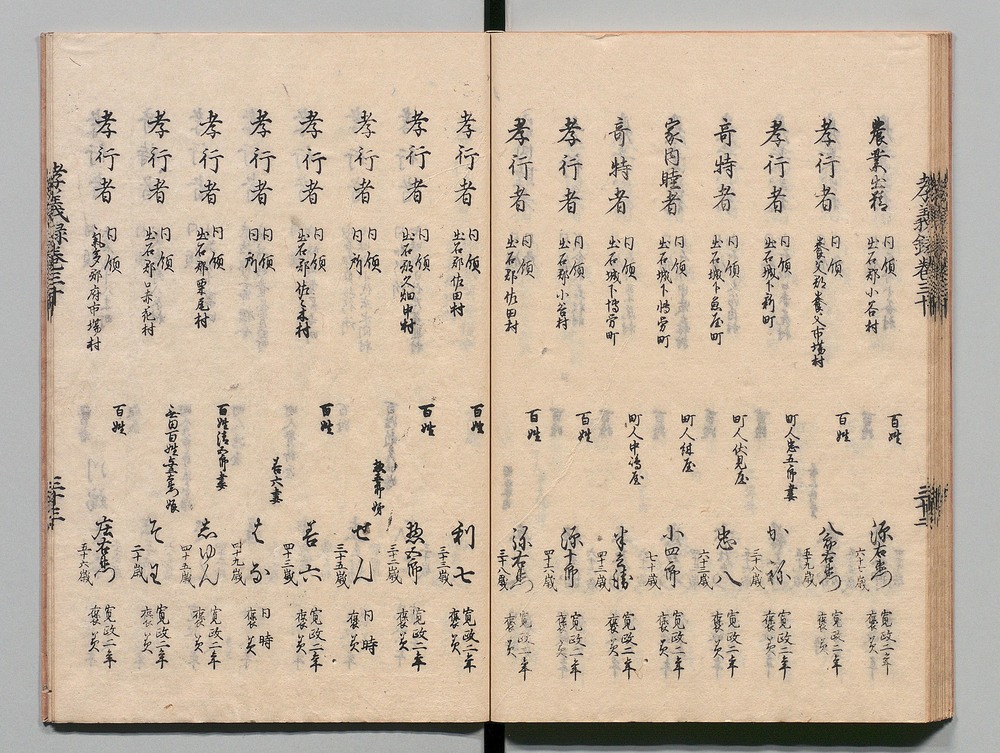 孝義録巻三十
農業出精 同領 出石郡小谷村 百姓 源右衛門 六十六歳 寛政二年 褒美
孝行者 同領 養父郡養父市場村 百姓 五十九歳 寛政二年 褒美
孝行者 同領 出石城下新町 町人忠五郎妻 かね 三十八歳 寛政二年 褒美
奇特者 同領 出石城下魚屋町 町人伏見屋 忠八 六十二歳 寛政二年 褒美
家内睦者 同領 出石城下博労町 町人紺屋 小四郎 七十歳 寛政二年 褒美
奇特者 同領 出石城下博労町 町人中嶋屋 四十二歳 寛政二年 褒美
孝行者 同領 出石郡小谷村 百姓 源十郎 四十二歳 寛政二年 褒美
孝行者 同領 出石郡佐田村 百姓 源右衛門 三十八歳 寛政二年 褒美
孝行者 同領 出石郡佐田村 百姓 利七 三十三歳 寛政二年 褒美
孝行者 同領 出石郡久畑中村 百姓 惣五郎 三十二歳 寛政二年 褒美
孝行者 同領 同所 せん 三十五歳 同時 褒美
孝行者 同領 出石郡佐々木村 百姓 善六 四十三歳 寛政二年 褒美
孝行者 同領 同所 善六妻 はな 四十九歳 同時 褒美
孝行者 同領 出石郡栗尾村 百姓清五郎妻 しゆん 四十五歳 寛政二年 褒美
孝行者 同領 出石郡口赤花村 二十歳 寛政二年 褒美
孝行者 同領 氣多郡府市場村 百姓 庄右衛門 五十六歳 寛政二年 褒美
孝義録巻三十